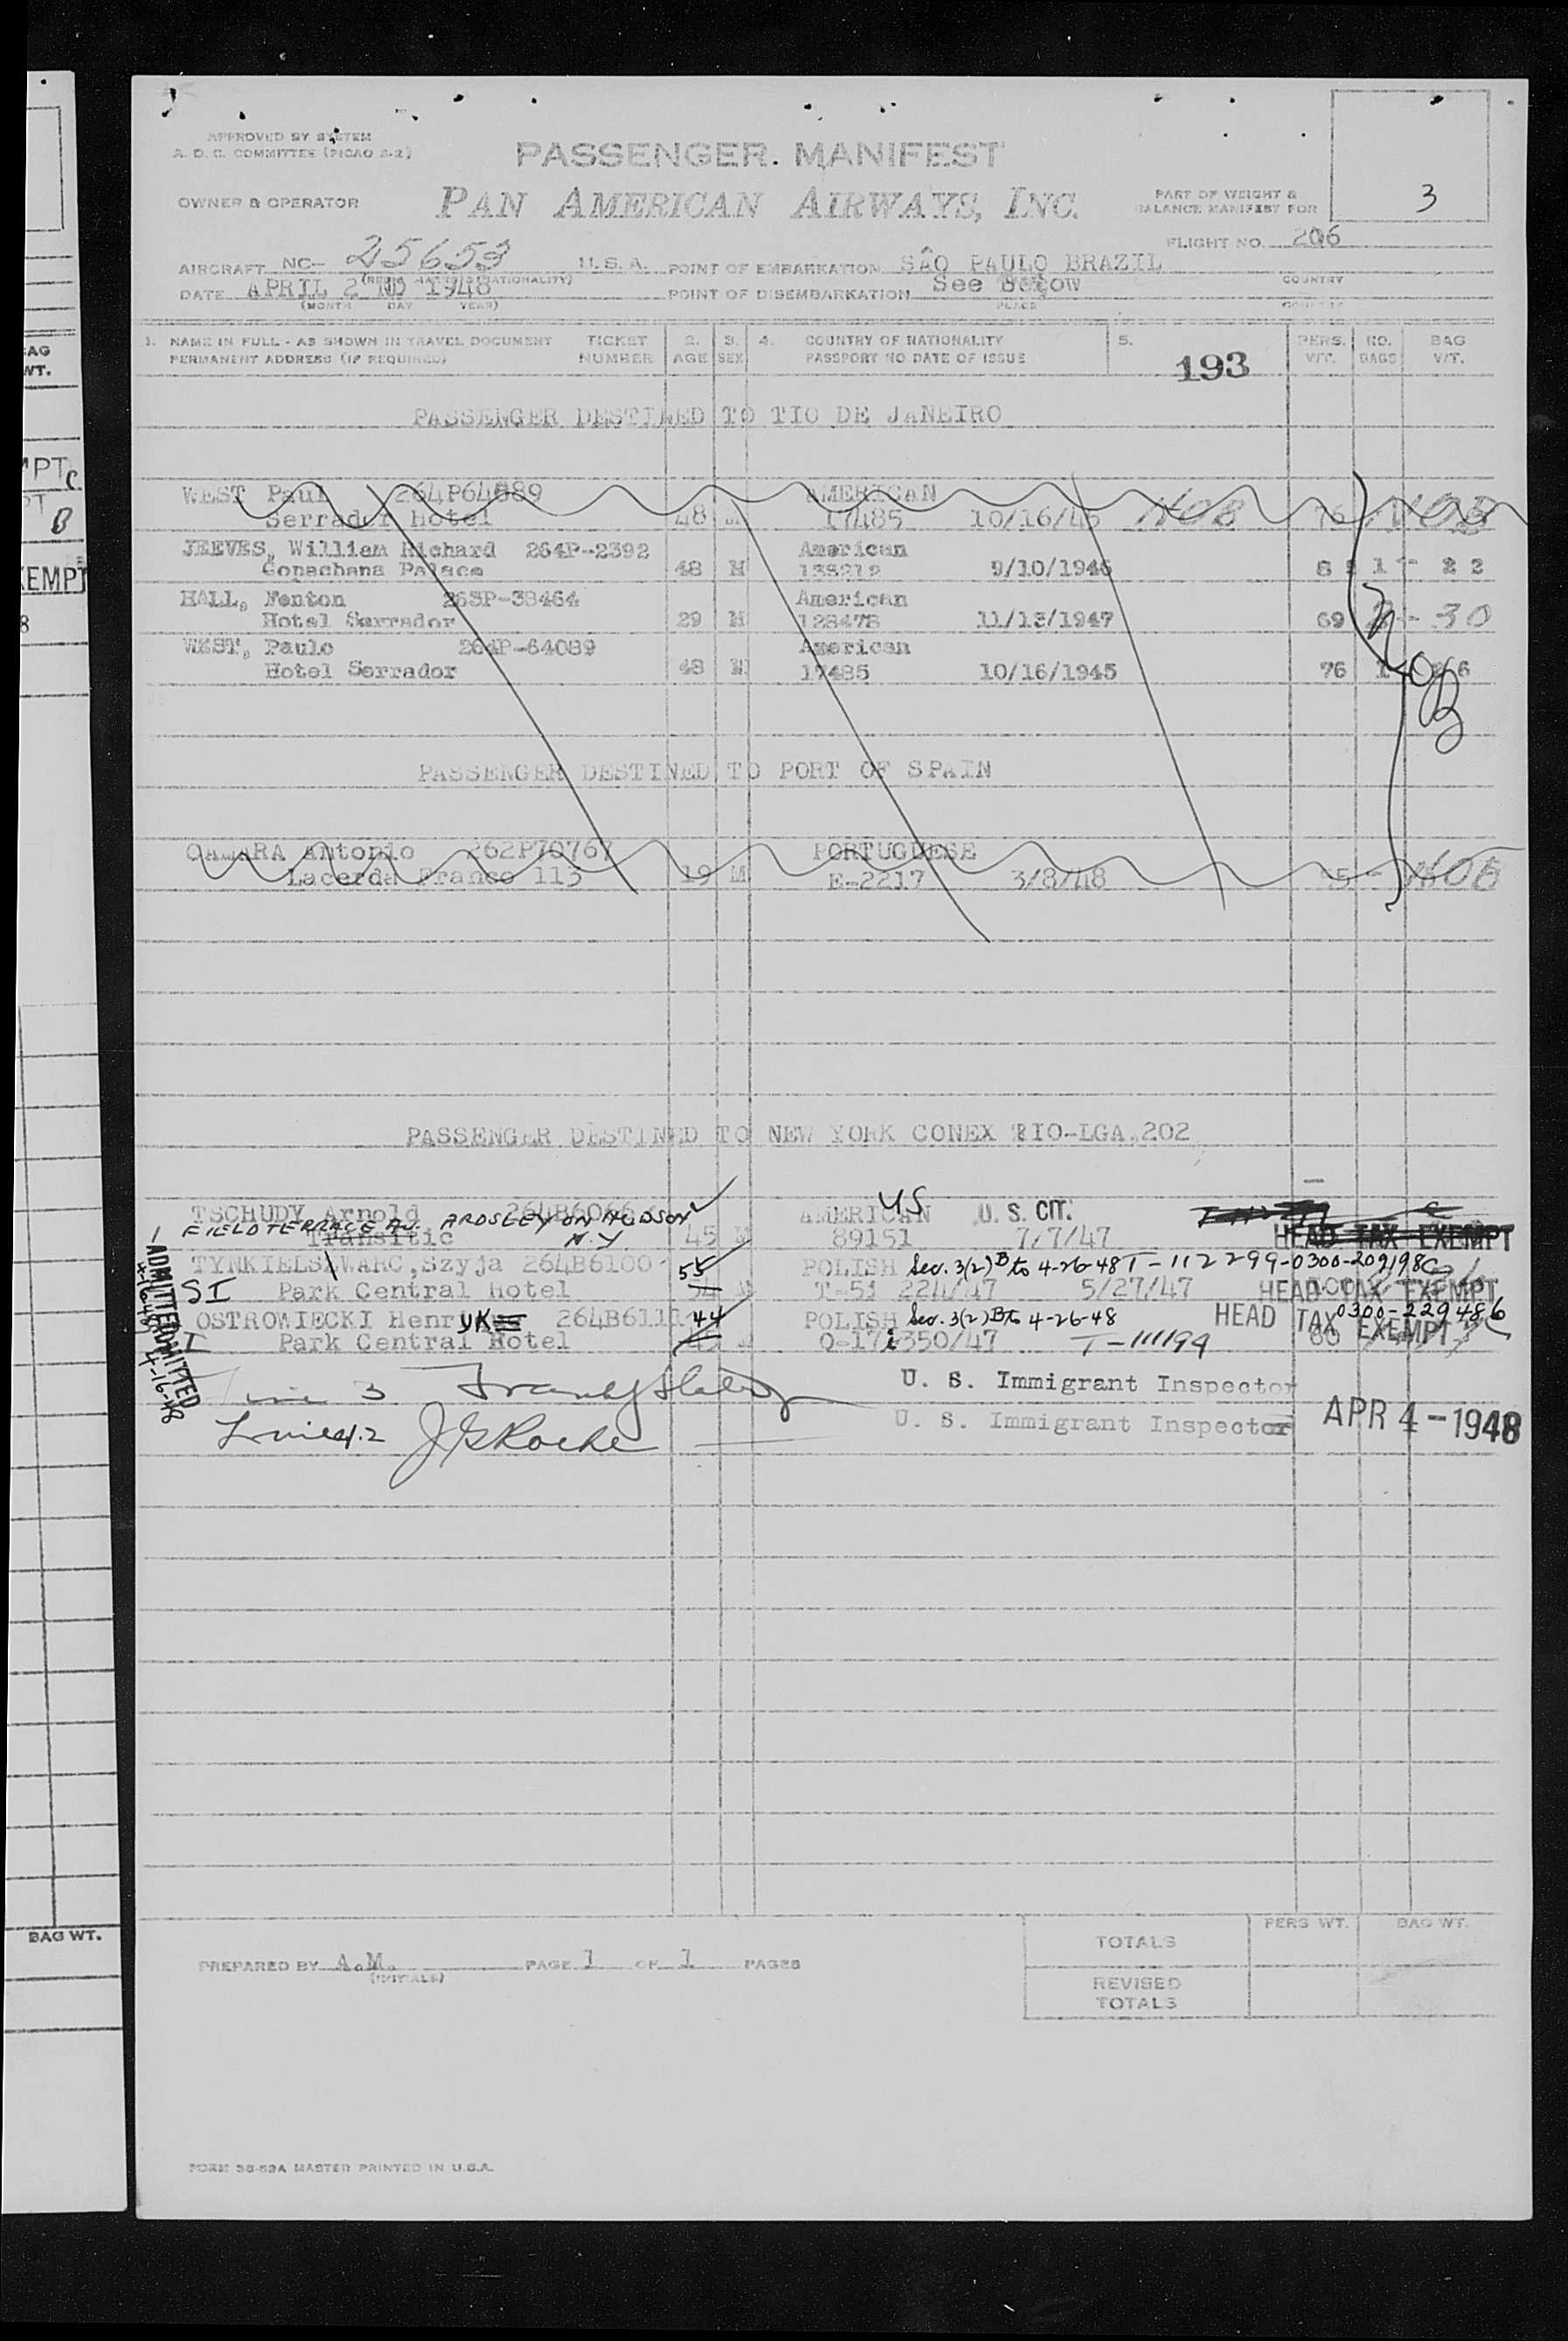 APPROVED BY SYSTEM
A. D. C. COMMITTEE (PICAO 2-2)
PASSENGER MANIFEST
OWNER & OPERATOR PAN AMERICAN AIRWAYS, INC.
PART OF WEIGHT &
BALANCE MANIFEST FOR
3
FLIGHT NO. 206
AIRCRAFT NC- 25653 U. S. A. POINT OF EMBARKATION SÃO PAULO BRAZIL
DATE APRIL 2 ND 1948 POINT OF DISEMBARKATION See Below
(MONTH DAY YEAR) PLACE COUNTRY
1. NAME IN FULL - AS SHOWN IN TRAVEL DOCUMENT TICKET 2. 3. 4. COUNTRY OF NATIONALITY 5. PERS. NO. BAG
PERMANENT ADDRESS (IF REQUIRED) NUMBER AGE SEX PASSPORT NO DATE OF ISSUE 193 WT. BAGS WT.
PASSENGER DESTINED TO TIO DE JANEIRO
WEST Paul 264P64089 AMERICAN
Serrador Hotel 48 M 17485 10/16/45 NOB 76 NOB
JEEVES, William Richard 264P-2392 American
Copachana Palace 48 M 138212 9/10/1946 1 - 22
HALL, Fenton 263P-38464 American
Hotel Serrador 29 M 128478 11/13/1947 69 2 - 30
WEST, Paulo 264P-64089 American
Hotel Serrador 48 M 17485 10/16/1945 76 1
NOB
PASSENGER DESTINED TO PORT OF SPAIN
CAMARA Antonio 262P70767 PORTUGUESE
Lacerda Franco 113 19 M E-2217 3/8/48 NOB
PASSENGER DESTINED TO NEW YORK CONEX RIO-LGA.202
TSCHUDY Arnold AMERICAN US U. S. CIT.
FIELD TERRACE AV. ARDSLEY ON HUDSON
Transitic N.Y. 45 M 89151 7/7/47 HEAD TAX EXEMPT
TYNKIELSZWARC, Szyja 264B6100 55 POLISH Sec. 3(2) B to 4-26-48 T-112299-0300-209198
SI Park Central Hotel T-51 224/47 5/27/47 HEAD TAX EXEMPT
OSTROWIECKI Henryk 264B6111 44 POLISH Sec. 3(2) B to 4-26-48 HEAD TAX EXEMPT 0300-229486
Park Central Hotel 350/47 T-111194 80
ADMITTED
ADMITTED
4-16-48
Line 3 U. S. Immigrant Inspector
Lines 1.2 J G Roche U. S. Immigrant Inspector APR 4-1948
TOTALS PERS WT. BAG WT.
PREPARED BY A.M. PAGE 1 OF 1 PAGES
(INITIALS)
REVISED
TOTALS
FORM 36-52A MASTER PRINTED IN U.S.A.
AG
WT.
EXEMPT
BAG WT.